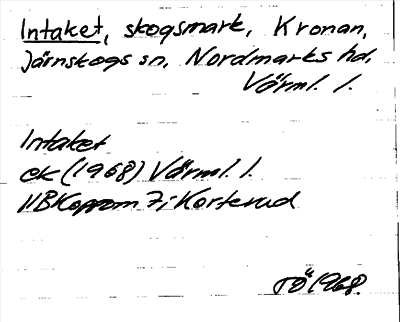 Intaket, skogsmark, Kronan,
Järnskogs sn, Nordmarks hd,
Värml. l.
Intaket
ek (1968) Värml. l.
11B Koppom 7i Korterud
TÖ 1968.